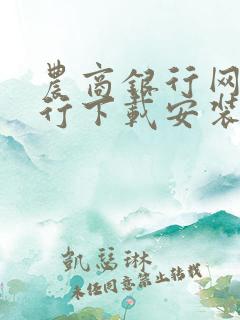 農商銀行网
行下載安裝
凱瑟琳
未经同意禁止转载